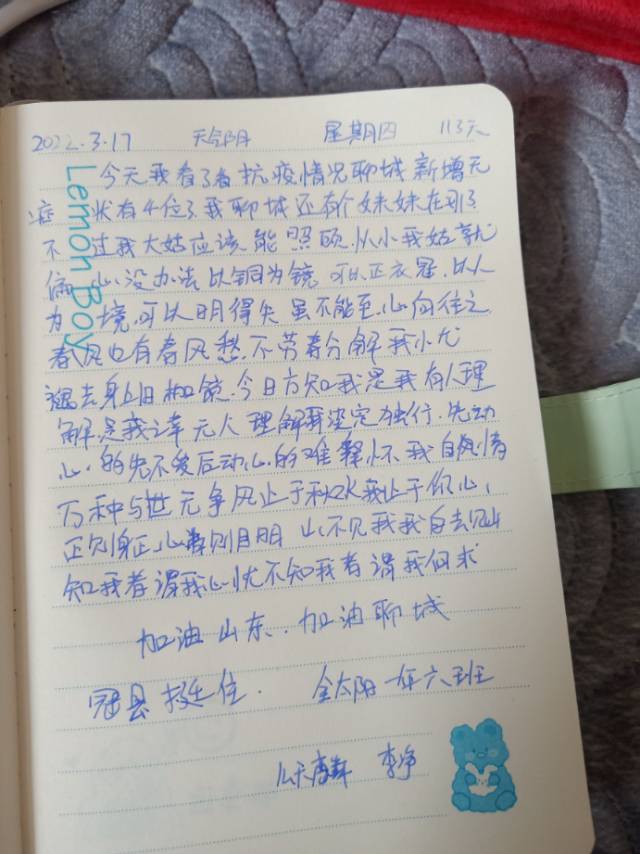 2022.3.17 天气阴 星期四 113天
今天我看了看抗疫情况聊城新增无
症状有4位了我聊城还有个妹妹在那了
不过我大姑应该能照顾.从小我姑就
偏心没办法以铜为镜可以正衣冠.以人
为境.可以明得失虽不能至.心向往之
春风也有春风愁.不劳春分解我忧
褪去身上枷锁.今日方知我是我有人理
解是我幸无人理解我坚定独行.先动
心的先不爱后动心的难释怀我自风情
万种与世无争风止于秋水我止于你心
正则身正心净则目明 山不见我我自去见山
知我者谓我心忧不知我者谓我何求
加油山东..加油聊城
冠县挺住. 金太阳一年六班
李净
Lemon Boy